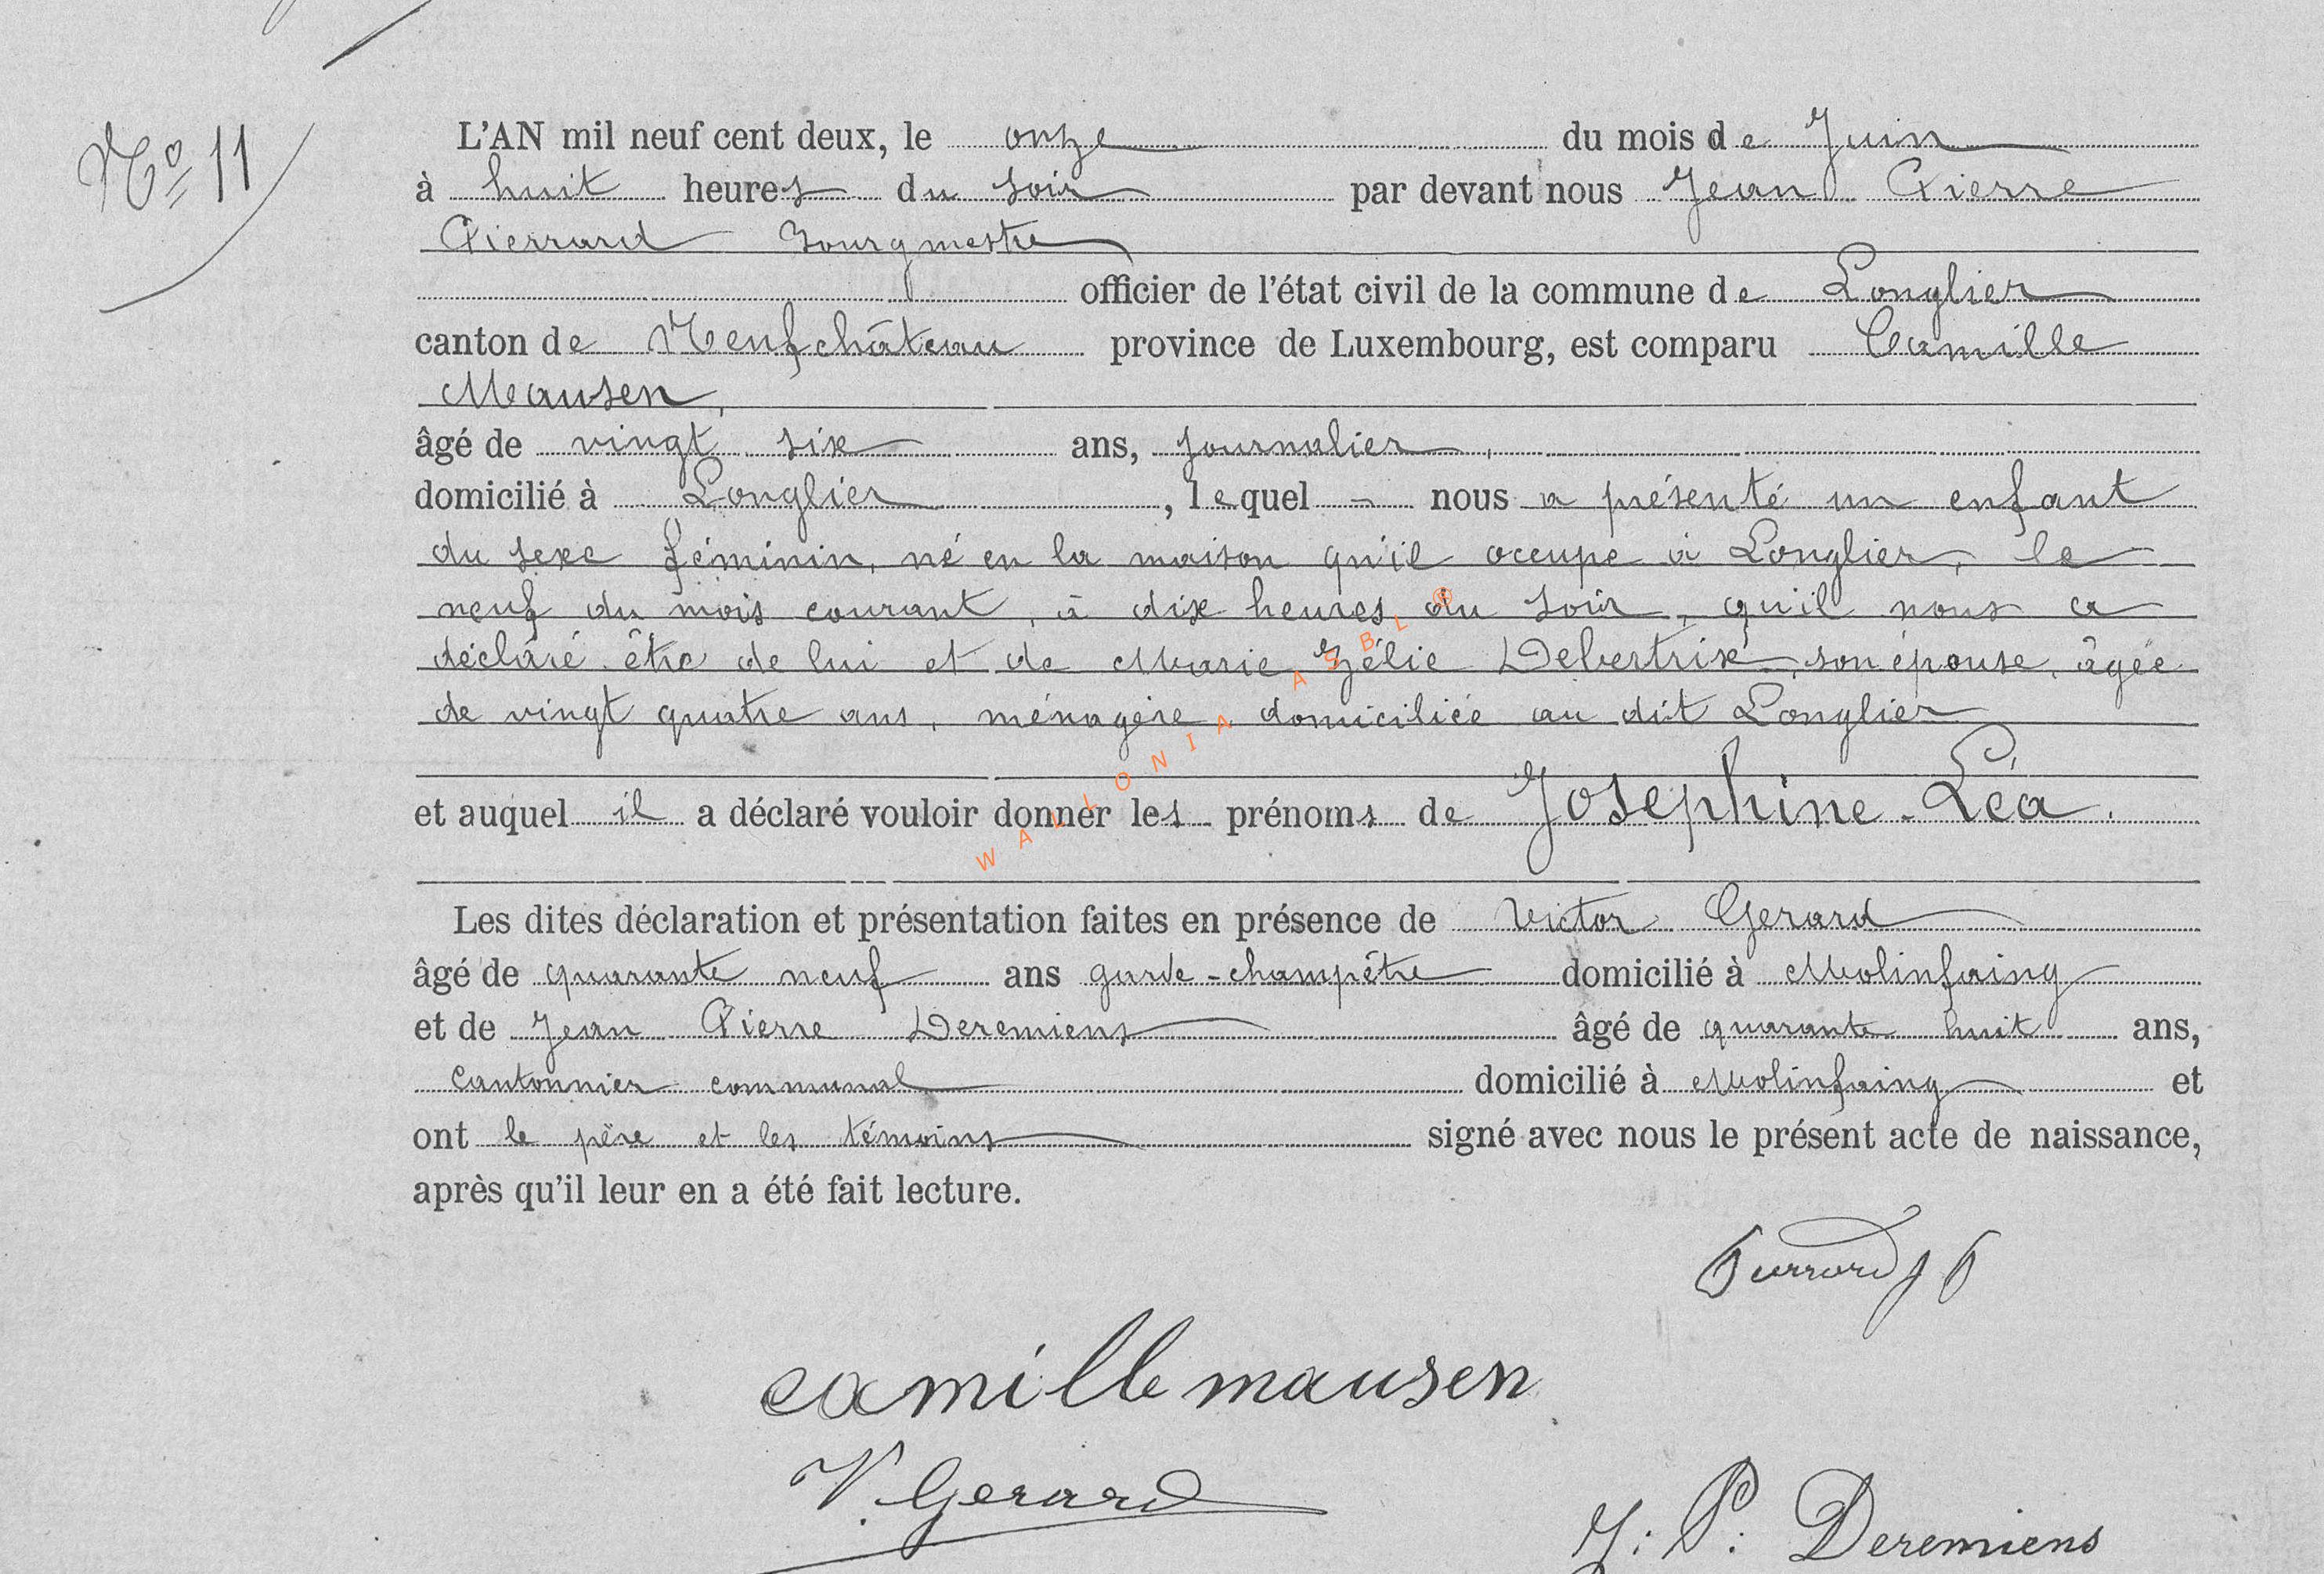 Nº 11
L'AN mil neuf cent deux, le onze du mois de Juin
à huit heures du soir par devant nous Jean Pierre
Pierrard Bourgmestre
officier de l'état civil de la commune de Longlier
canton de Neufchâteau province de Luxembourg, est comparu Camille
Mausen,
âgé de vingt six ans, journalier,
domicilié à Longlier, lequel nous a présenté un enfant
du sexe féminin, né en la maison qu'il occupe à Longlier, le
neuf du mois courant, à dix heures du soir, qu'il nous a
déclaré être de lui et de Marie Zélie Debertrix, son épouse, âgée
de vingt quatre ans, ménagère, domiciliée au dit Longlier
et auquel il a déclaré vouloir donner les prénoms de Joséphine-Léa.
Les dites déclaration et présentation faites en présence de Victor Gerard
âgé de quarante neuf ans garde-champêtre domicilié à Molinfaing
et de Jean Pierre Deremiens âgé de quarante huit ans,
cantonnier communal domicilié à Molinfaing et
ont le père et les témoins signé avec nous le présent acte de naissance,
après qu'il leur en a été fait lecture.
Pierrard J P
camille mausen
V. Gerard
J. P. Deremiens
WALLONIA ASBL ®